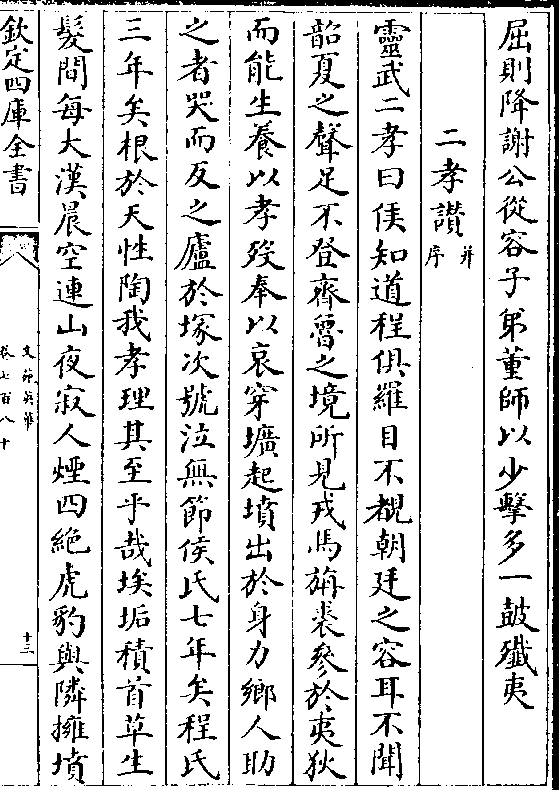 屈則降謝公從容子弟董師以少擊多一鼓殲夷
二孝讃并序
靈武二孝曰侯知道程俱羅目不覩朝廷之容耳不聞
韶夏之聲足不登齊魯之境所見戎馬旃裘參於夷狄
而能生養以孝歿奉以哀穿壙起墳出於身力鄉人助
之者哭而反之廬於塚次號泣無節侯氏七年矣程氏
三年矣根於天性陶我孝理其至乎哉埃垢積首草生
髮間每大漠晨空連山夜寂人煙四絶虎豹與隣擁墳
欽定四庫全書
文苑英華
卷七百八十
十三